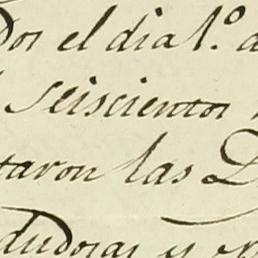 Dos el dia 1.º d
seiscientos
taron las D
dudosas y ex